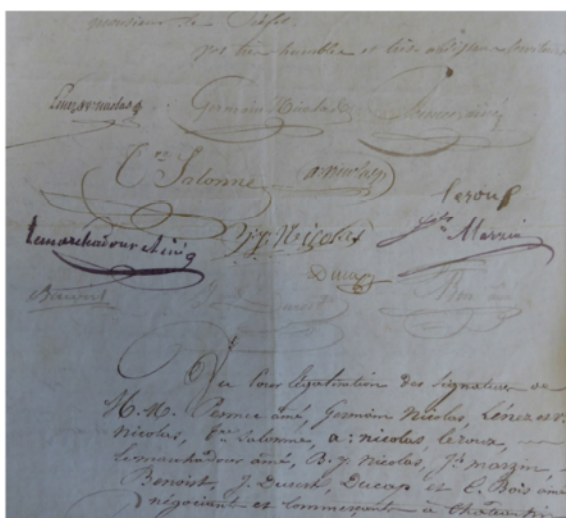 monsieur le Préfet
vos très humbles et très obéissans serviteurs
Lénez et nicolas
Germain Nicolas
fre Salonne
a: nicolas
leroux
Lemarchadour ainé
B. y. Nicolas
Jh Marzin
Ducap
Benoist
J. Ducrest
Bois ainé
Vu Pour légalisation des signatures de
M.M. ainé, Germain Nicolas, Lénez et
Nicolas, fre Salonne, a: nicolas, leroux,
Lemarchadour ainé, B. y. Nicolas, Jh marzin,
Benoist, J. Ducrest, Ducap et C. Bois ainé
négociants et commerçants à Châteaulin